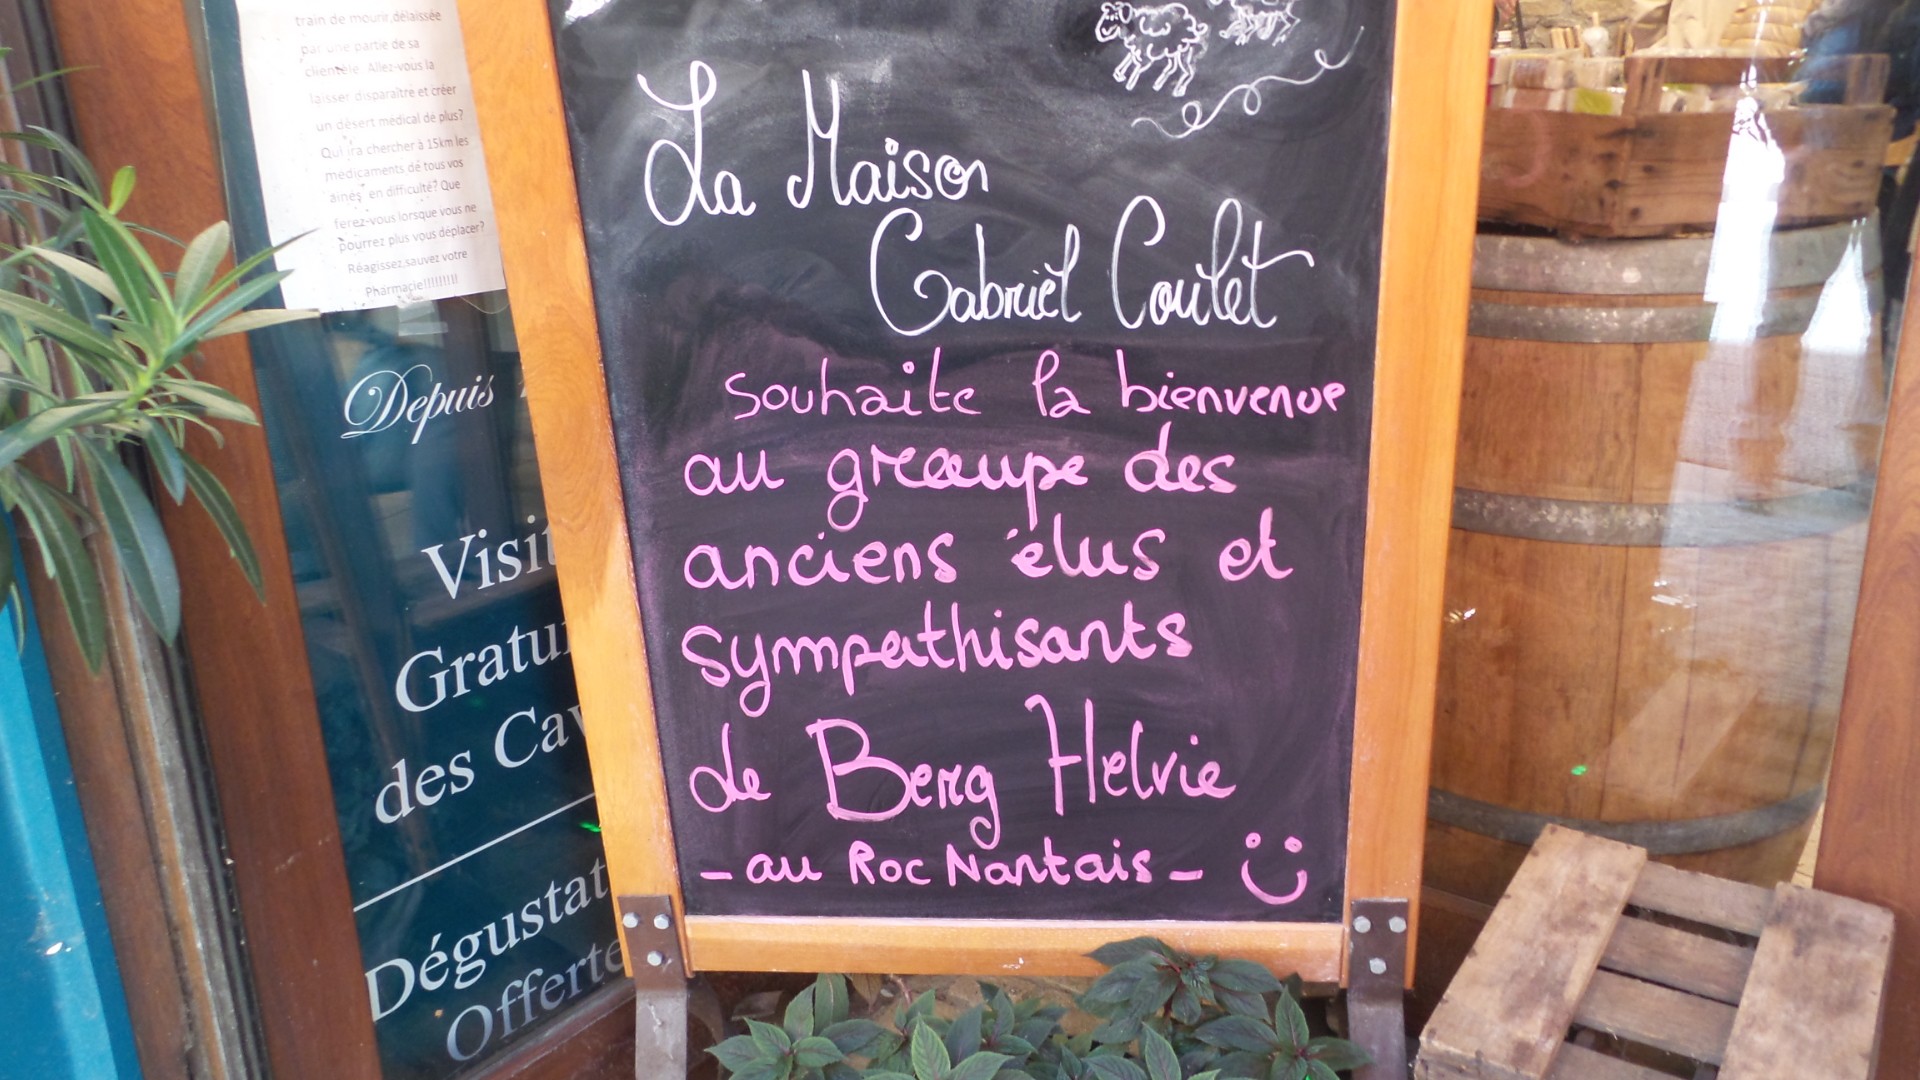 train de mourir,délaissée
par une partie de sa
clientèle. Allez-vous la
laisser disparaître et créer
un désert médical de plus?
Qui ira chercher à 15km les
médicaments de tous vos
ainés en difficulté? Que
ferez-vous lorsque vous ne
pourrez plus vous déplacer?
Réagissez,sauvez votre
Pharmacie!!!!!!!!!
Depuis
Visit
Gratui
des Cav
Dégustat
Offerte
La Maison
Gabriel Coulet
souhaite la bienvenue
au groupe des
anciens élus et
sympathisants
de Berg Helvie
- au Roc Nantais -